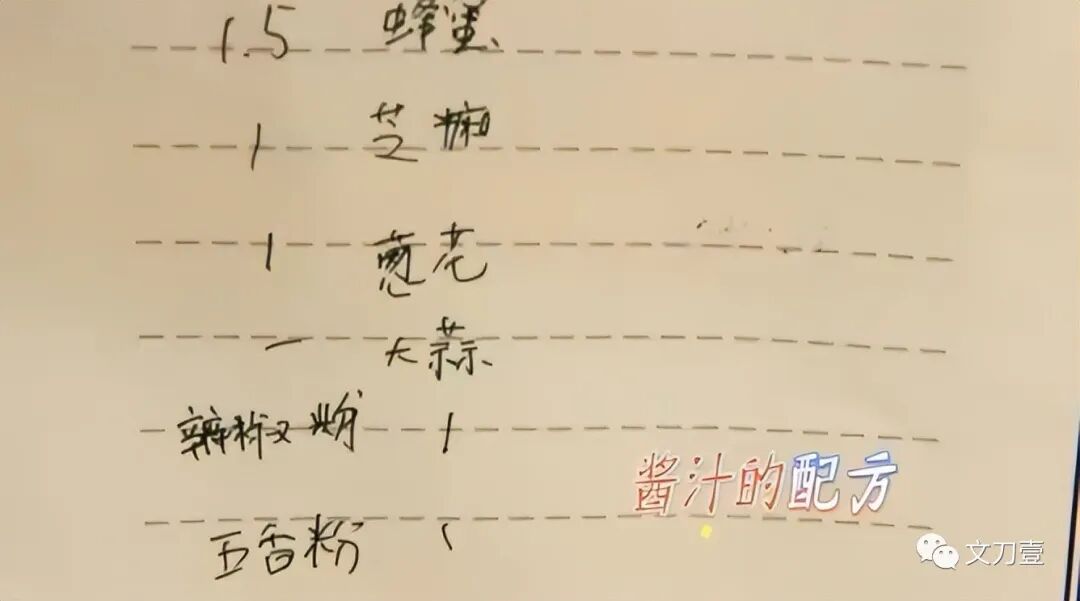 1.5 蜂蜜
1 芝麻
1 葱花
一 大蒜
辣椒粉 1
酱汁的配方
五香粉 1
文刀壹